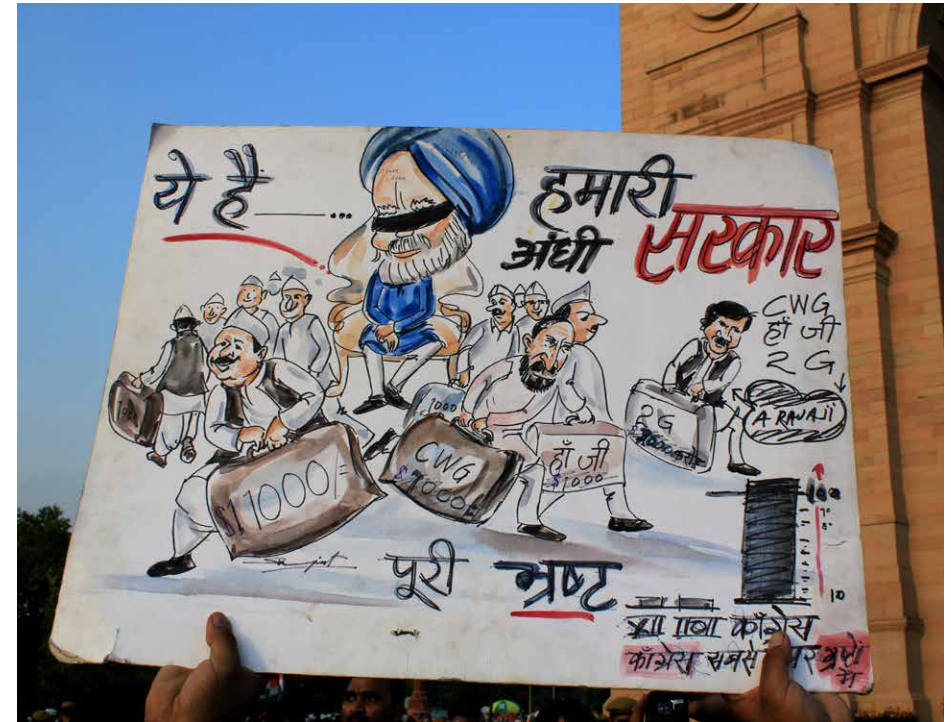 ये है ----...
हमारी
अंधी सरकार
CWG
हाँ जी
2 G
A RAJAJI
2G
1000
CWG
$1000
हाँ जी
$1000
$11000/=
100
10
पूरी भ्रष्ट
काँग्रेस
काँग्रेस सबसे